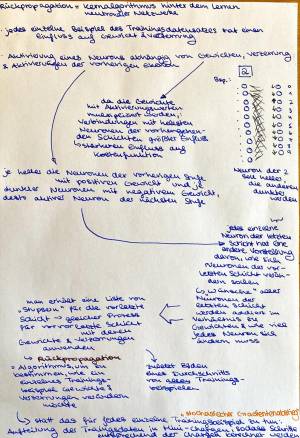 Rückpropagation = Kernalgorithmus hinter dem Lernen
neuronaler Netzwerke
· jedes einzelne Beispiel des Trainingsdatensatzes hat einen
Einfluss auf Gewicht & Verzerrung
· Aktivierung eines Neurons abhängig von Gewichten, Verzerrung
& Aktivierungen der vorherigen
da die Gewichte
mit Aktivierungswerten
multipliziert werden,
Verbindungen mit hellsten
Neuronen der vorhergehen-
den Schichten größter Einfluss
Einfluss auf
Kostenfunktion
Bsp.:
2
Neuron der 2
soll heller
die anderen
dunkler
werden
je heller die Neuronen der vorherigen Stufe
mit positivem Gewicht und je
dunkler Neuronen mit negativem Gewicht,
desto aktiver Neuron der nächsten Stufe
jedes einzelne
Neuron der letzten
Schicht hat eine
andere Vorstellung
davon, wie sich
Neuronen der vor-
letzten Schicht
sollen
"Wünsche" aller
Neuronen der
letzten Schicht
werden addiert im
Verhältnis der
Gewichte & wie viel
jedes Neuron sich
ändern muss
man erhält eine Liste von
"Stupsen" für die vorletzte
Schicht → gleicher Prozess
für vorvorletzte Schicht
mit deren
Gewichte & Verzerrungen
anwenden
↳ Rückpropagation
= Algorithmus, um zu
bestimmen, wie ein
einzelnes Trainings-
beispiel Gewichte &
Verzerrungen verändern
möchte
zuletzt Bilden
eines Durchschnitts
von allen Trainings-
beispielen
= stochastischer Gradientenabstieg
→ statt das für jedes einzelne Trainingsbeispiel zu tun:
Aufteilung der Trainingsdaten in Mini-Chargen, sodass Schritte
entsprechend der Chargen berechnet werden